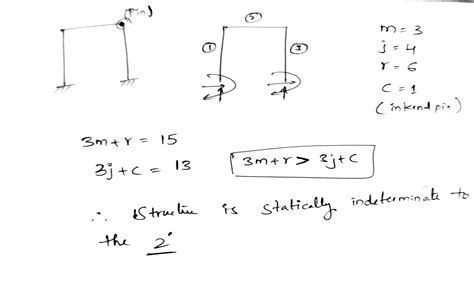 (Pin)
②
① ③
m = 3
j = 4
r = 6
C = 1
(internal pin)
3m+r = 15
3j+C = 13
3m+r > 3j+C
∴ Structure is statically indeterminate to
the 2°